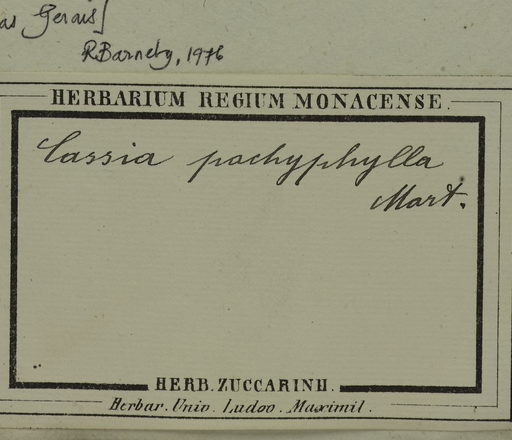 as Gerais]
R Barneby, 1976
HERBARIUM REGIUM MONACENSE.
Cassia pachyphylla
Mart.
HERB. ZUCCARINII.
Herbar. Univ. Ludov. Maximil.